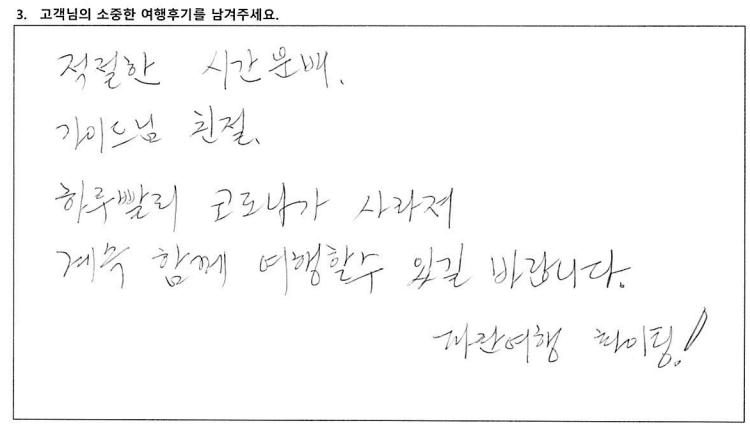 3. 고객님의 소중한 여행후기를 남겨주세요.
적절한 시간분배.
가이드님 친절.
하루빨리 코로나가 사라져
계속 함께 여행할수 있길 바랍니다.
파란여행 화이팅!